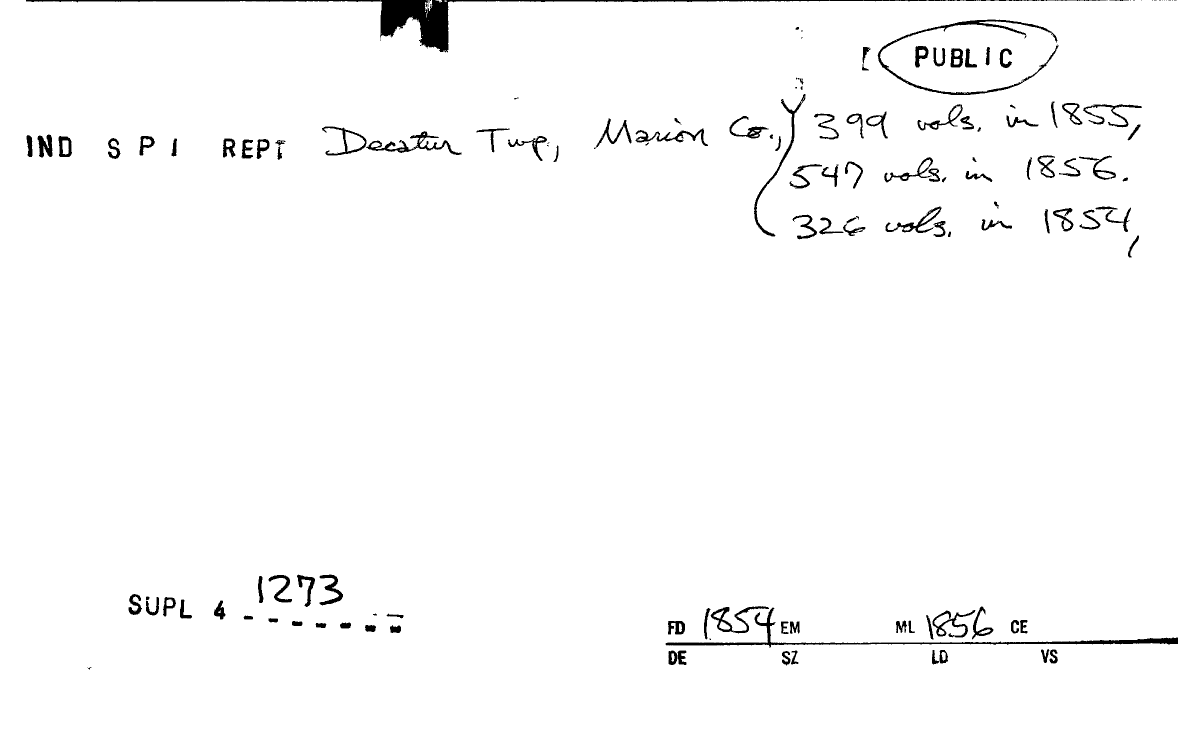 PUBLIC
IND S P I REPT Decatur Twp, Marion Co., 399 vols. in 1855,
547 vols. in 1856.
326 vols. in 1854,
SUPL 4 1273
FD 1854 EM ML 1856 CE
DE SZ LD VS